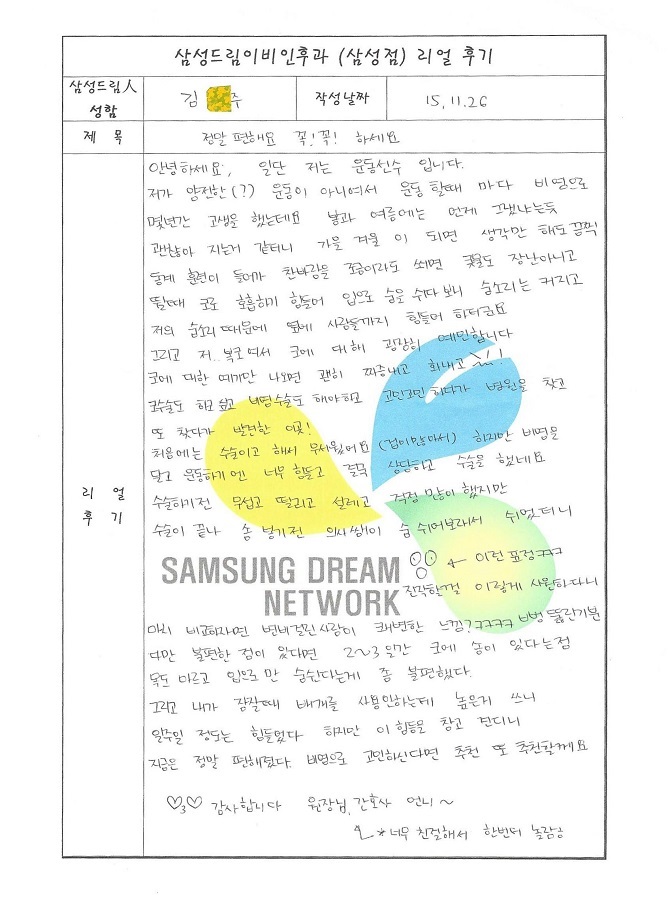 삼성드림이비인후과 (삼성점) 리얼 후기
삼성드림人 성함
김 주
작성날짜
15.11.26
제 목
정말 편해요 꼭! 꼭! 하세요
리 얼
후 기
안녕하세요, 일단 저는 운동선수 입니다.
저가 얌전한(?) 운동이 아니여서 운동 할때 마다 비염으로
몇년간 고생을 했는데요 봄과 여름에는 언제 그랬냐는듯
괜찮아 지는거 같더니 가을 겨울 이 되면 생각만 해도 끔찍
동계 훈련이 들어가 찬바람을 조금이라도 쐬면 콧물도 장난아니고
뛸때 코로 호흡하기 힘들어 입으로 숨을 쉬다 보니 숨소리는 커지고
저의 숨소리 때문에 옆에 사람들까지 힘들어 하더라구요
그리고 저.. 복코여서 코에 대해 굉장히 예민합니다
코에 대한 얘기만 나오면 괜히 짜증내고 화내고
코수술도 하고 싶고 비염수술도 해야하고 고민고민 하다가 병원을 찾고
또 찾다가 발견한 이곳!
처음에는 수술이고 해서 무서웠어요 (겁이많아서) 하지만 비염을
달고 운동하기엔 너무 힘들고 결국 상담하고 수술을 했네요
수술하기전 무섭고 떨리고 설레고 걱정 많이 했지만
수술이 끝나 솜 넣기전 의사쌤이 숨 쉬어보라해서 쉬었더니
← 이런 표정ㅋㅋㅋ
SAMSUNG DREAM
NETWORK
진작할껄 이렇게 시원하다니
마치 비교하자면 변비걸린사람이 쾌변한 느낌?ㅋㅋㅋㅋ 뻥 뚫린기분
다만 불편한 점이 있다면 2~3일간 코에 솜이 있다는점
목도 마르고 입으로 만 숨쉰다는게 좀 불편했다.
그리고 내가 잠잘때 배개를 사용안하는데 높은거 쓰니
일주일 정도는 힘들었다 하지만 이 힘듦을 참고 견디니
지금은 정말 편해졌다. 비염으로 고민하신다면 추천 또 추천할께요
♡3♡ 감사합니다 원장님, 간호사 언니 ~
*너무 친절해서 한번더 놀람